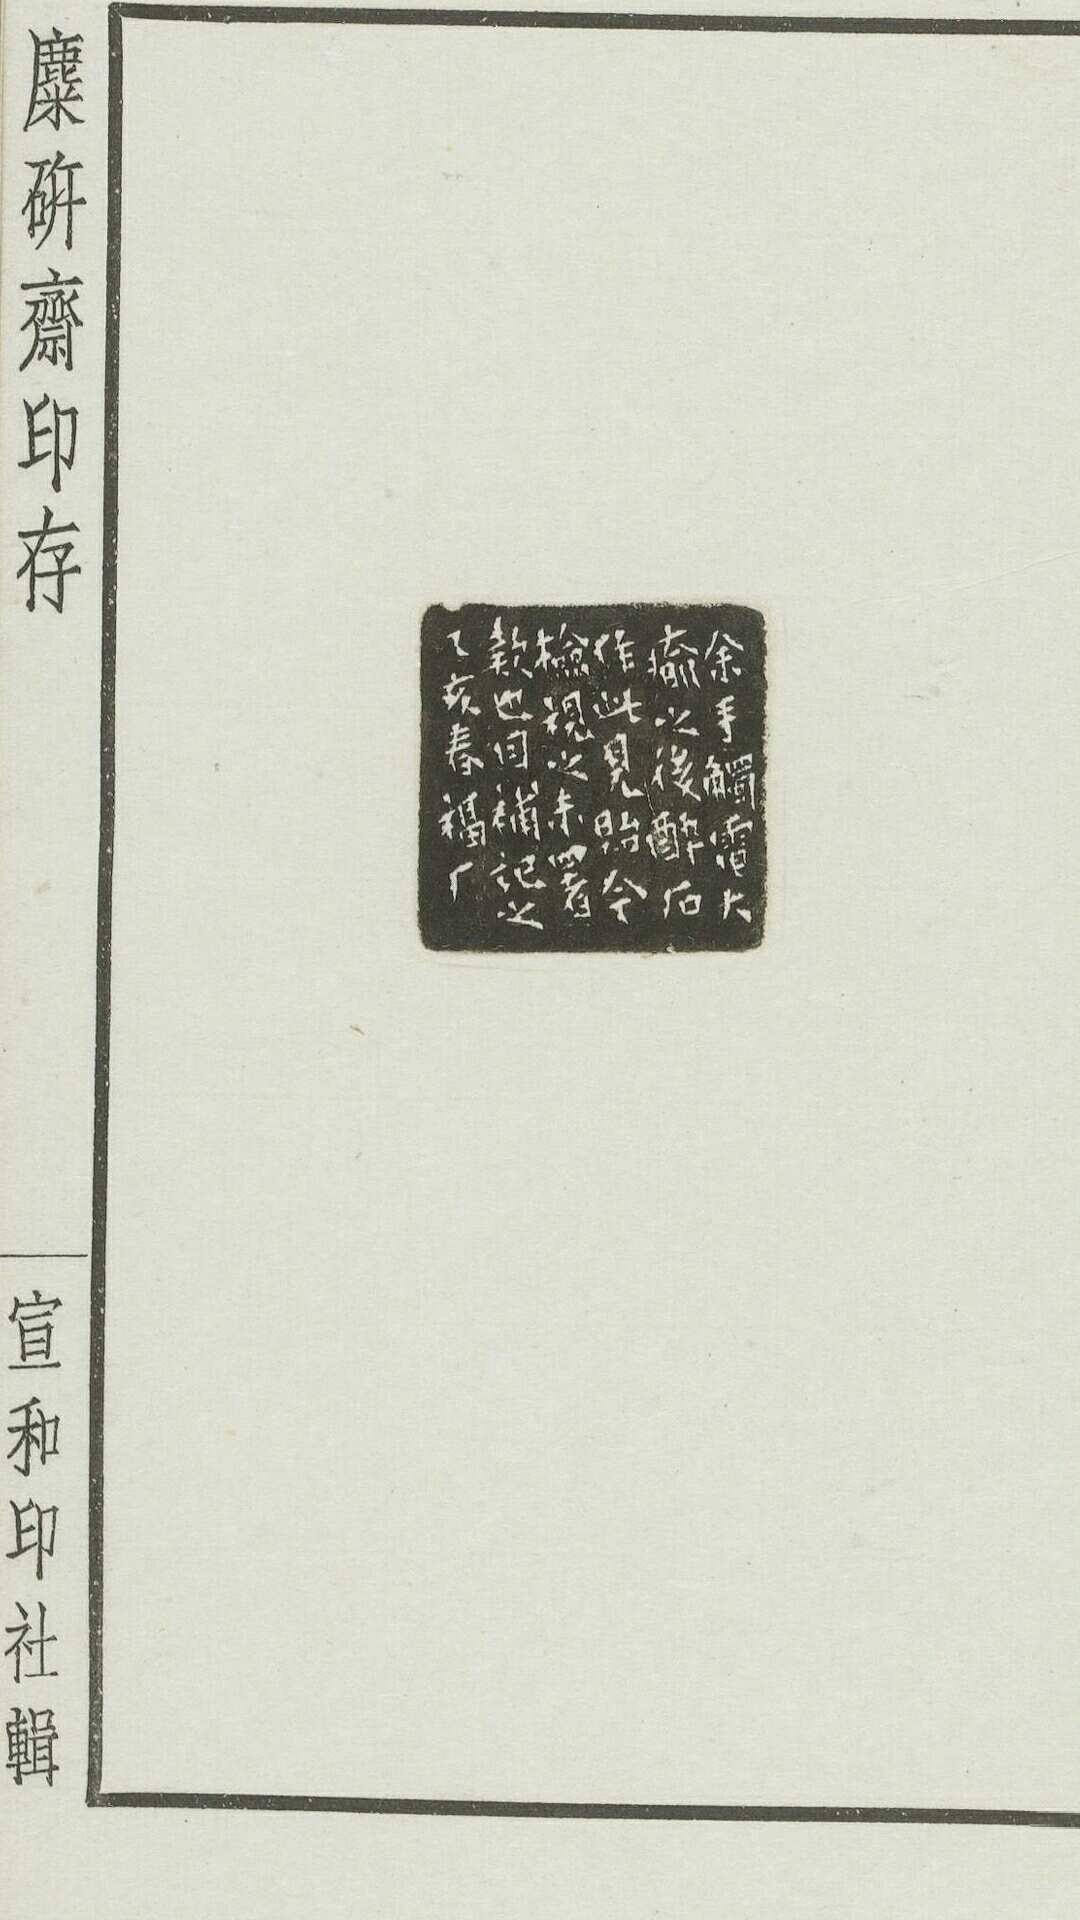 麋研齋印存
宣和印社輯
余手觸電大
痛之後醉石
作此見貽今
檢視之未署
款也因補記之
乙亥春福厂